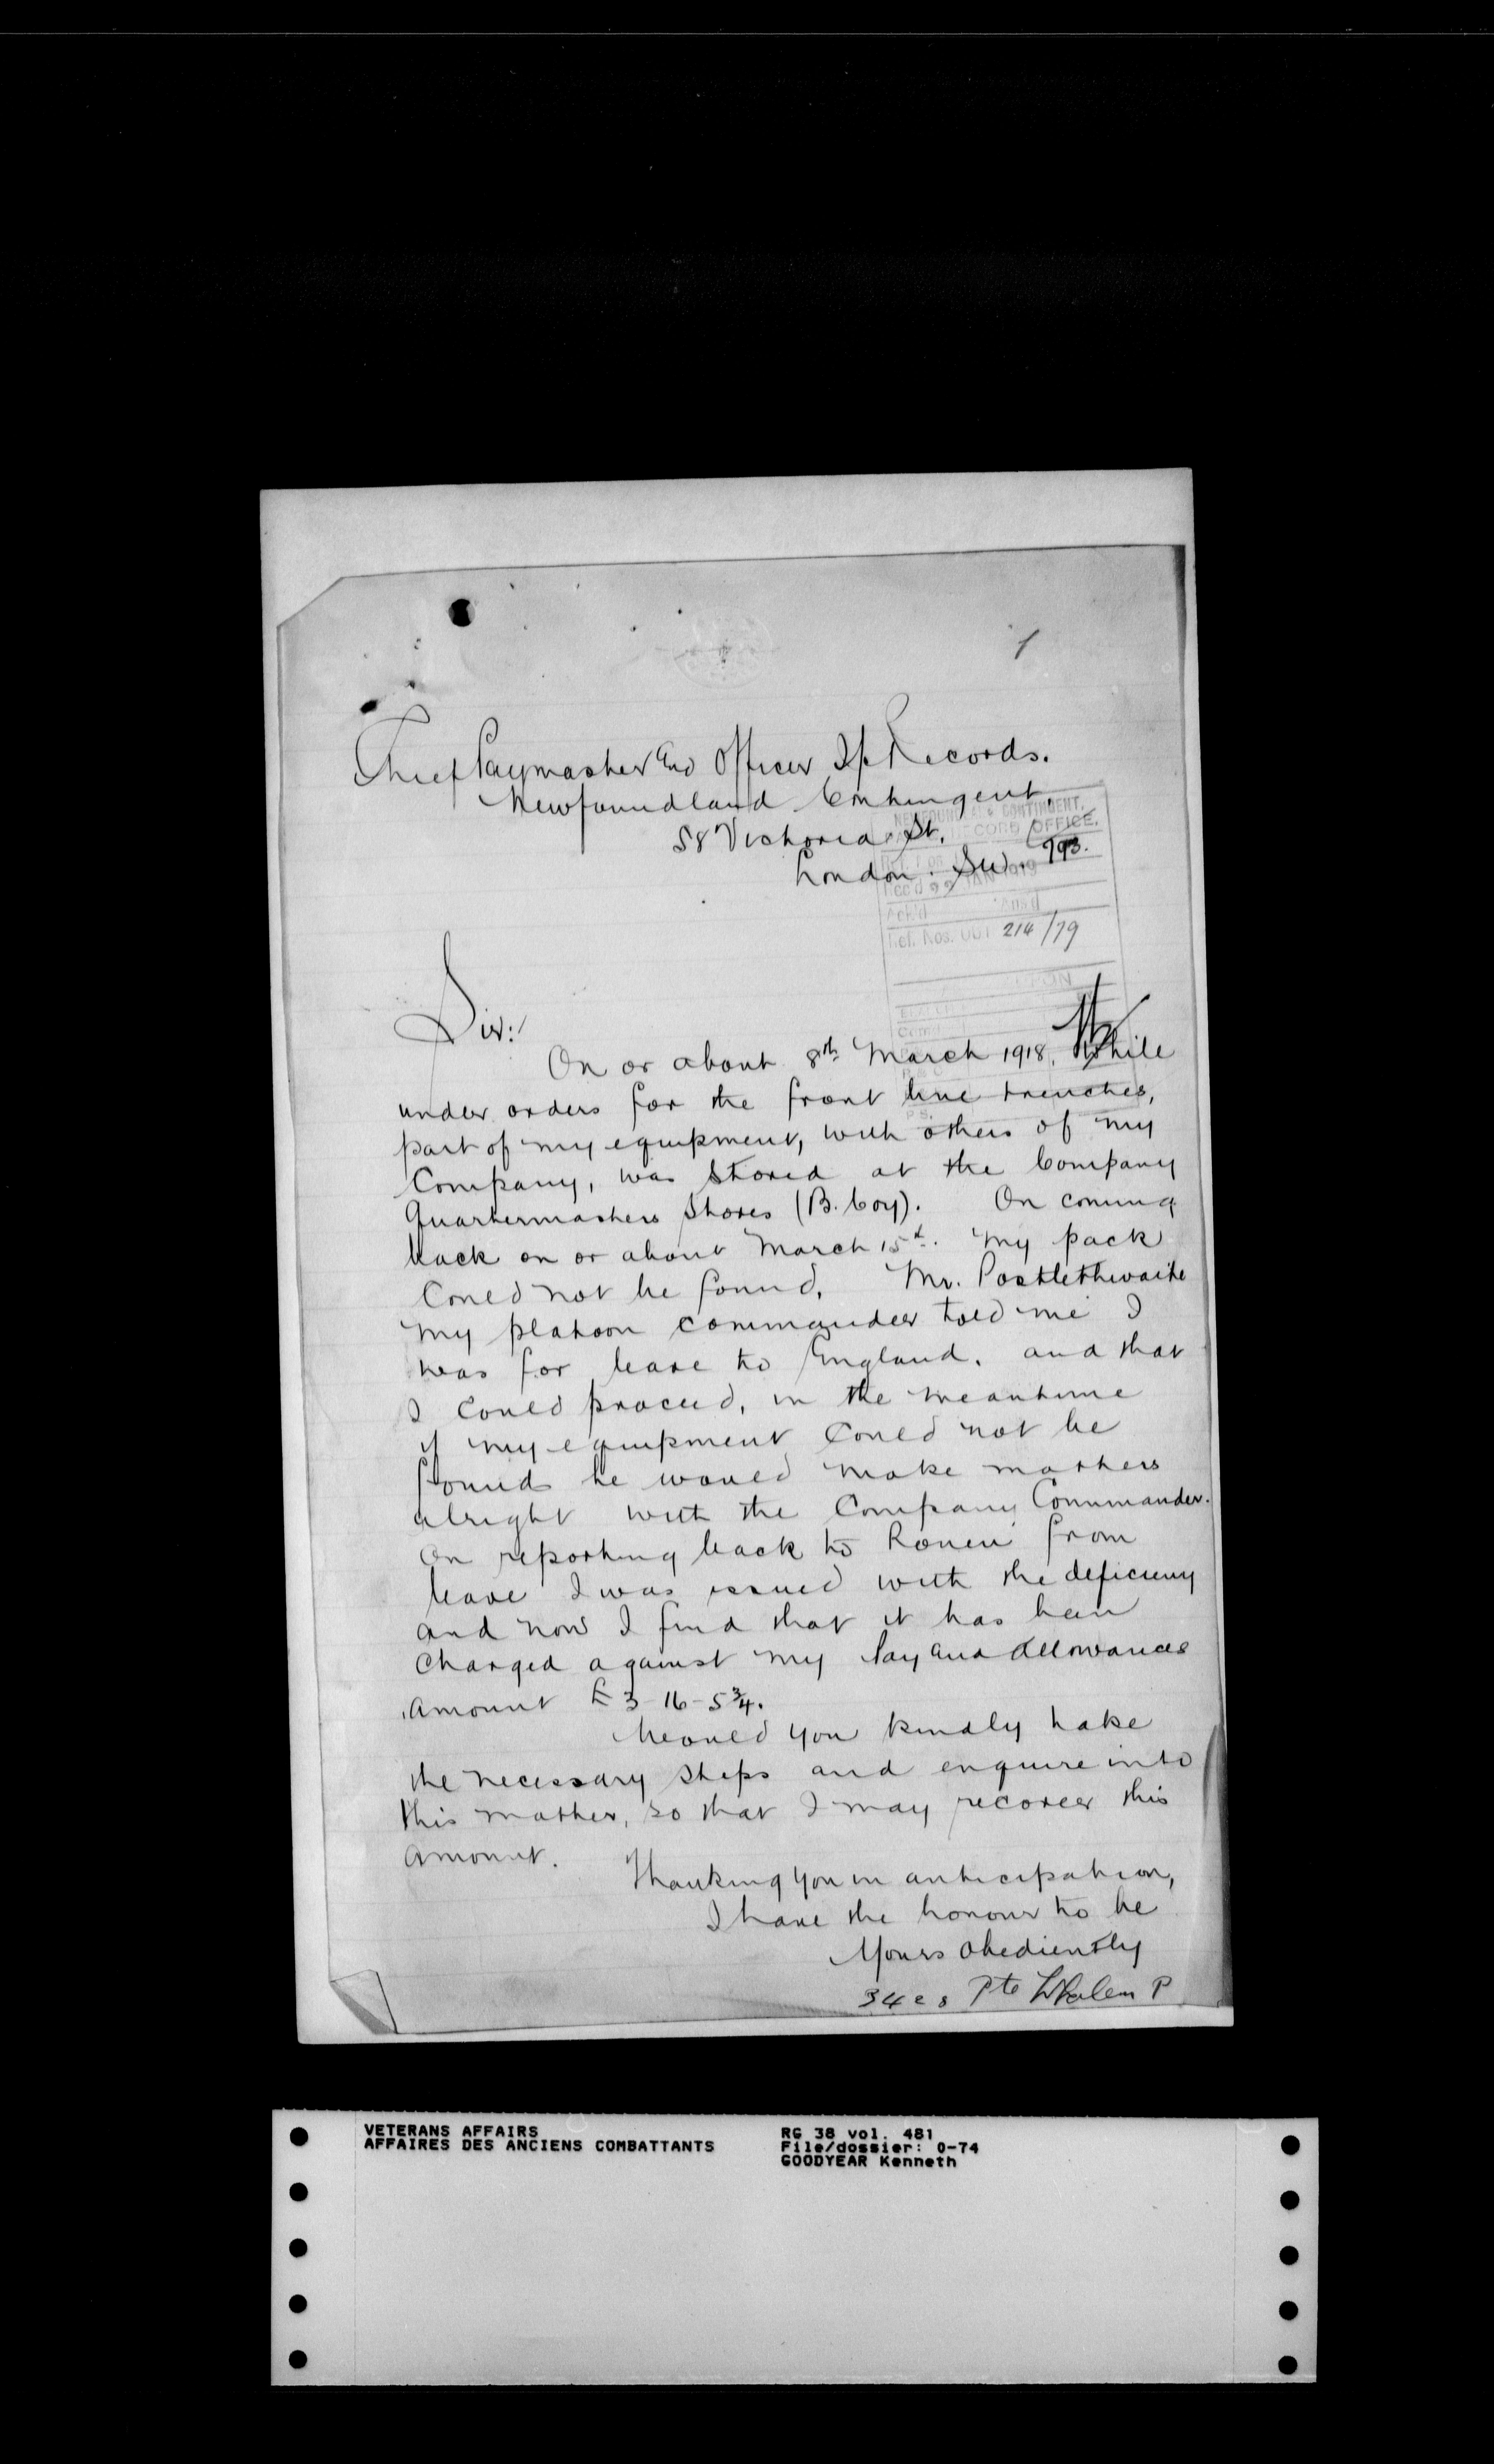 1
Chief Paymaster and Officer I/c Records.
Newfoundland Contingent,
58 Victoria St,
London. S.W.
NEWFOUNDLAND CONTINGENT.
RECORD OFFICE.
793.
Rec'd 22 JAN 1919
Ack'd Ans'd
Ref. Nos. OUT 214/79
Sir:
On or about 8th March 1918, While
under orders for the front line trenches,
part of my equipment, with others of my
Company, was stored at the Company
Quartermasters Stores (B. Coy). On coming
back on or about March 15th. my pack
could not be found. Mr. Postlethwaite
my platoon commander told me I
was for leave to England. and that
I could proceed, in the meantime
if my equipment could not be
found he would make matters
alright with the Company Commander.
On reporting back to Rouen from
leave I was issued with the deficiency
and now I find that it has been
charged against my Pay and Allowances
amount £3-16-5¾.
Would you kindly take
the necessary steps and enquire into
this matter, so that I may recover this
amount.
Thanking you in anticipation,
I have the honour to be
Yours Obediently
3428 Pte Whalen P
VETERANS AFFAIRS
AFFAIRES DES ANCIENS COMBATTANTS
RG 38 vol. 481
File/dossier: 0-74
GOODYEAR Kenneth